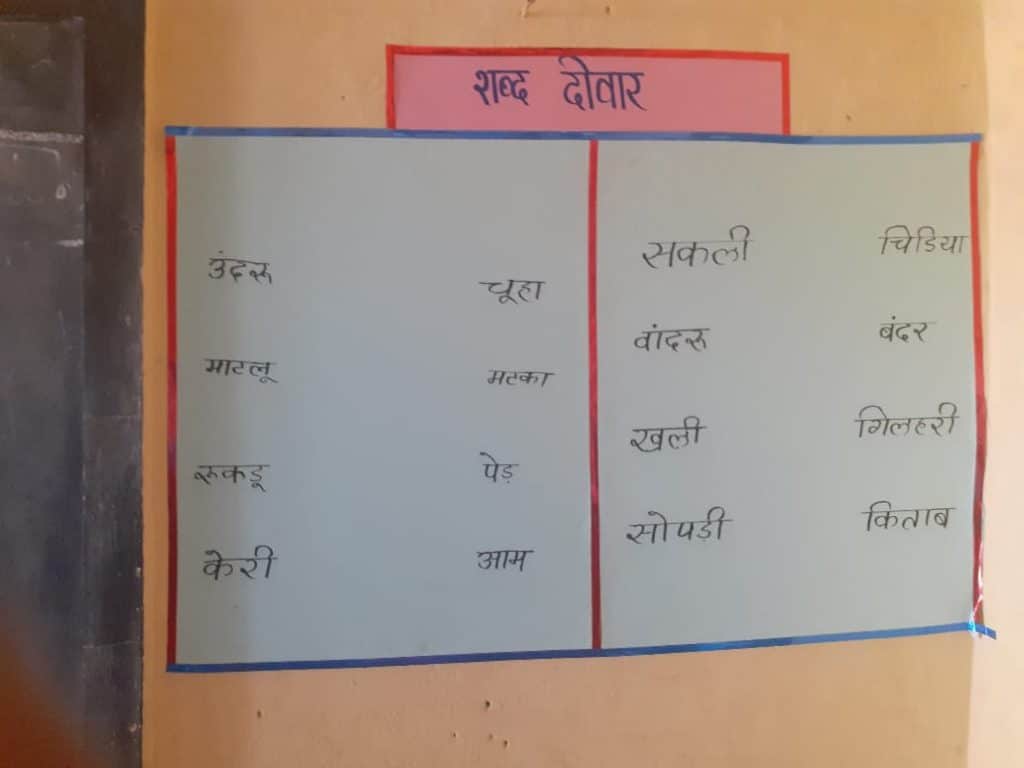 शब्द दीवार
उंदरू चूहा
माटलू मटका
रूकडू पेड़
केरी आम
सकली चिडिया
वांदरू बंदर
खली गिलहरी
सोपड़ी किताब